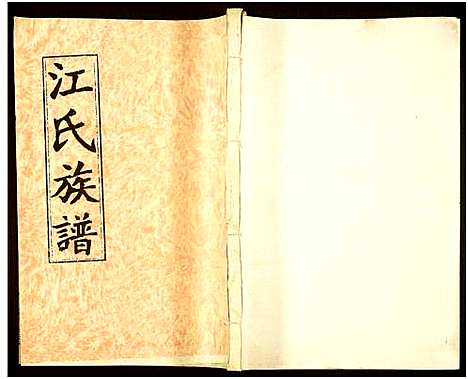 江氏族譜